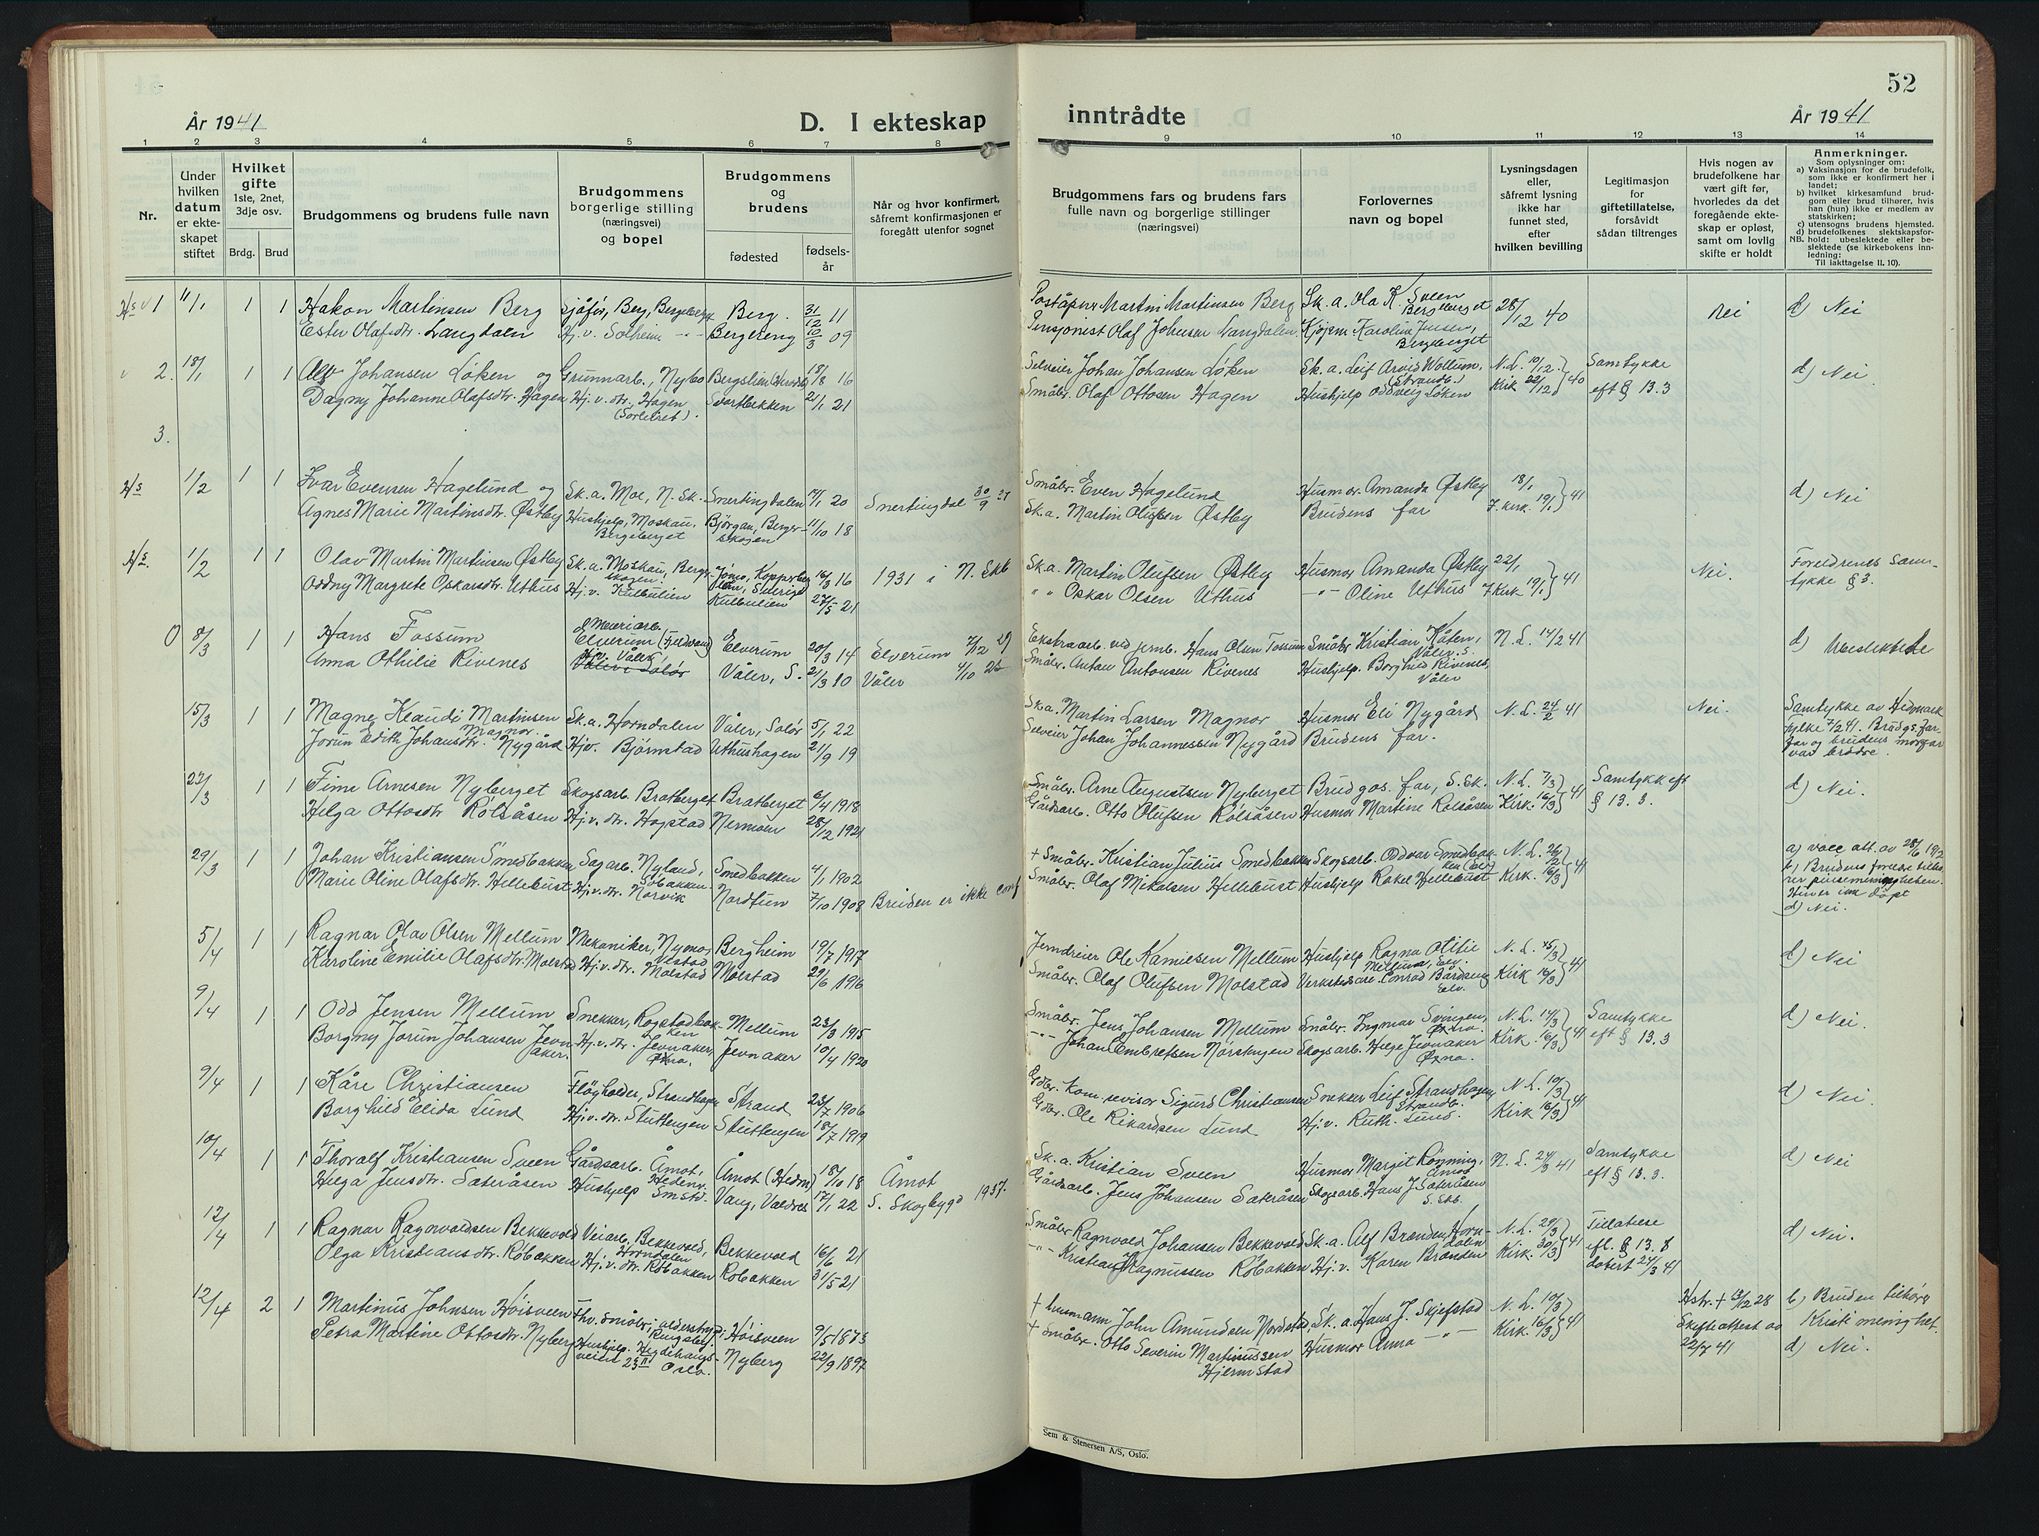 52
År 1941
D. I ekteskap
inntrådte
År 1941
1 2 3 4 5 6 7 8 9 10 11 12 13 14
Nr.
Under
hvilken
datum
er ekte-
skapet
stiftet
Hvilket
gifte
1ste, 2net,
3dje osv.
Brdg. Brud
Brudgommens og brudens fulle navn
Brudgommens
borgerlige stilling
(næringsvei)
og bopel
Brudgommens
og
brudens
fødested
fødsels-
år
Når og hvor konfirmert,
såfremt konfirmasjonen er
foregått utenfor sognet
Brudgommens fars og brudens fars
fulle navn og borgerlige stillinger
(næringsvei)
Forlovernes
navn og bopel
Lysningsdagen
eller,
såfremt lysning
ikke har
funnet sted,
efter
hvilken bevilling
Legitimasjon
for
giftetillatelse,
forsåvidt
sådan tiltrenges
Hvis nogen av
brudefolkene har
vært gift før,
hvorledes da det
foregående ekte-
skap er opløst,
samt om lovlig
skifte er holdt
Anmerkninger.
Som oplysninger om:
a) Vaksinasjon for de brudefolk,
som ikke er konfirmert her i
landet;
b) hvilket kirkesamfund brud-
gom eller brud tilhører, hvis
han (hun) ikke er medlem av
statskirken;
c) utensogns brudens hjemsted.
d) brudefolkenes slektskapsfor-
NB. hold: ubeslektede eller be-
slektede (se kirkebokens inn-
ledning:
Til iakttagelse II. 10).
1 11/1 1 1 Hakon Martinsen Berg Sjåfør, Berg, Bergeberget Berg. 31/12 11 Poståpner Martin Martinsen Berg Sk.a. Ola K. Sveen Bergeberget 28/12 40 Nei d) Nei
Ester Olafsdtr. Langdalen Hj.v. Solheim Bergeneng 10/3 09 Pensjonist Olaf Johnsen Langdalen Karoline Jensen, Bergeberget
2. 18/1 1 1 Alf Johansen Løken og Grunnarb., Nybo 18/8 16 Selveier Johan Johansen Løken Sk.a. Leif Arvid Wollum, (Strandb.) N.L. 10/12 Samtykke d) Nei
Dagny Johanne Olafsdtr. Hagen Hj.v. dtr., Hagen Svartbekken 21/1 21 Småbr. Olaf Ottosen Hagen Hushjelp Oddveig Løken Kirk 22/12 40 eft § 13.3
3.
1/2 1 1 Ivar Evensen Hagelund og Sk.a. Moe, N. Sk. Snertingdalen 20 Snertingdal 30/9 Småbr. Even Hagelund Husmor Amanda Østby 18/1 d) Nei
Agnes Marie Martinsdtr. Østby Hushjelp, Moskau, Bergeberget Bjørgan, Berger-skogen 11/10 18 Sk.a. Martin Olufsen Østby Brudens far F.kirk. 19/1 41
1/2 1 1 Olav Martin Martinsen Østby Sk.a. Moskau, Berger-skogen 16/3 16 1931 i N. Skb Sk.a. Martin Olufsen Østby Husmor Amanda Østby 22/1 41 Nei. Foreldrenes sam-
Oddny Margrete Oskarsdtr. Uthus Hj.v. Kulbulien Kulbulien 27/5 21 " " Oskar Olsen Uthus Oline Uthus F Kirk 19/1 tykke § 3.
8/3 1 1 Hans Fossum Meieriarb. Elverum Elverum 20/3 14 Elverum 29 Ekstraarb. ved jernb. Hans Olsen Fossum Småbr. Kristian Kåten, Våler, S. N.L. 14/2 41 d) Ubeslektede
Anna Othilie Rivenes Hj.v. Våler Våler, S. 21/3 10 Våler 4/10 25 Småbr. Anton Antonsen Rivenes Hushjelp Borghild Rivenes, Våler
15/3 1 1 Magne Klaudi Martinsen Magnor Sk.a. Horndalen Våler, Solør 5/1 22 Sk.a. Martin Larsen Magnor Husmor Eli Nygård N.L. 24/2 41 Nei. Samtykke av Hedmark
Jorun Edith Johansdtr. Nygård Hj.v. Bjørnstad Uthushagen 21/9 19 Selveier Johan Johannessen Nygård Brudens far. fylke 7/2 41. Brudgs. far-
far og brudens morfar
var brødre.
22/3 1 1 Finn Arnesen Nyberget Skogsarb. Bratberget Bratberget 6/4 1918 Småbr. Arne Augustsen Nyberget Brudgos. far, S. Sk. N.L. 7/3 Samtykk eft d) Nei.
Helga Ottosdtr Rolsåsen Hj.v. dtr. Hogstad Nermoen 28/12 1921 Gårdsarb. Otto Olufsen Rolsåsen Husmor Martine Rolsåsen Kirk. 16/3 41 § 13. 3.
29/3 1 1 Johan Kristiansen Smedbakken Sagarb. Nyland, 4/1 1902 + Småbr. Kristian Julius Smedbakken Skogsarb. Oddvar Smedbakken N.L. 26/2 a) vacc. att. av 28/6 1912
Marie Oline Olafsdtr. Hellebust Hj.v. dtr. Norvik Nordtun 7/10 1908 Bruden er ikke conf Småbr. Olaf Nikolsen Hellebust Hushjelp Rakel Hellebust Kirk. 16/3 41 b) Brudens foreldre tilhø-
rer pinsemenigheten.
Hun er ikke døpt
d) Nei.
5/4 1 1 Ragnar Olav Olsen Mellum Mekaniker, Nymo, Bergheim 19/7 1917 Jerndreier Ole Kamiesen Mellum Hushjelp Ragna Otilie Mellum, Elv. N.L. 15/3 d) Nei
Karoline Emilie Olafsdtr. Molstad Hj.v. dtr. Molstad Molstad 29/6 1916 Småbr. Olaf Olufsen Molstad Conrad Bårdseng Elv. Kirk 16/3 41
9/4 1 1 Odd Jensen Mellum Snekker, Rogstadbakken Mellum 23/3 1915 Småbr. Jens Johansen Mellum Småbr. Ingmar Svingen, N.L. 14/3 Samtykke d) Nei.
Borgny Jorun Johansen Jevnaker. Hj.v. dtr. Jevnaker, Jevnaker 19/4 1920 Johan Embretsen Nørstengen Skogsarb. Helge Jevnaker Kirk. 16/3 41 eft § 13.3
9/4 1 1 Kåre Christiansen Fløyholder, Strandhagen Strand 23/7 1906 Gdbr. kom.revisor Sigurd Christiansen Snekker Leif Strandhagen, Strandb. N.L. 10/3 d) Nei.
Borghild Elida Lund Hj.v. dtr. Stuttengen Stuttengen 18/7 1919 Gdbr. Ole Rikardsen Lund Hj.v. Ruth Lund Kirk 16/3 41
10/4 1 1 Thoralf Kristiansen Sveen Gårdsarb. Åmot, Åmot (Hedm) 18/10 18 Åmot Sk.a. Kristian Sveen Husmor Margit Rønning, Åmot N.L. 24/3 41 Samtykke d) Nei
Helga Jensdtr. Sæteråsen Hushjelp Vang, Valdres 17/1 22 S. Skogbygd 1937. Gårdsarb. Jens Johansen Sæteråsen Skogsarb. Hans J. Sæteråsen S. Skb. eft § 13. 3.
12/4 1 1 Ragnar Ragnvaldsen Bekkevold Veiarb. Bekkevold, Horndalen Bekkevold 16/6 21 Småbr. Ragnvald Johansen Bekkevold Sk.a. Alf Brænden, Horndalen N.L. 29/3 Tillatelse d) Nei.
Olga Kristiansdtr. Røbakken Hj.v. dtr. Røbakken Røbakken 31/5 21 Kristian Magnussen Røbakken Hj.v. Karen Brænden Kirk. 30/3 41 efl. § 13. 8
datert 24/3 41
12/4 2 1 Martinus Johnsen Høisveen Fhv. småbr., alderstryg. Høisveen 9/5 1873 + husmann John Amundsen Nordstad Sk.a. Hans J. Skjefstad N.L. 10/3 Hstr. + 3/12 28 b) Bruden tilhører
Petra Martine Ottosdtr. Nyberg Hushjelp, Hegdehaugs-veien 23 Oslo. Nyberg 22/9 1897 + Småbr. Otto Severin Martinussen Hjermstad Husmor Anna Kirk. 16/3 41 Skifteattest av Kristi menighet.
22/7 41 d) Nei.
Sem & Stenersen A/S, Oslo.